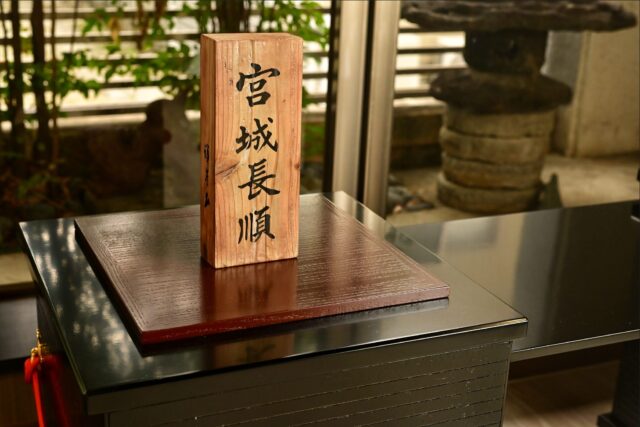 宮城長順